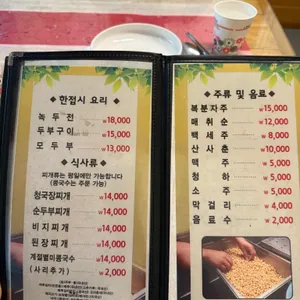 ◆ 한접시 요리 ◆
녹두전 ₩18,000
두부구이 ₩15,000
모두부 ₩13,000
◆ 식사류 ◆
찌개류는 평일에만 가능합니다
(콩국수는 주문 가능)
청국장찌개 ₩14,000
순두부찌개 ₩14,000
비지찌개 ₩14,000
된장찌개 ₩14,000
계절별미콩국수 ₩14,000
(사리추가) ₩2,000
◆ 주류 및 음료 ◆
복분자주 ₩15,000
매취순 ₩12,000
백세주 ₩8,000
산사춘 ₩10,000
맥주 ₩5,000
청하 ₩5,000
소주 ₩5,000
막걸리 ₩4,000
음료수 ₩2,000